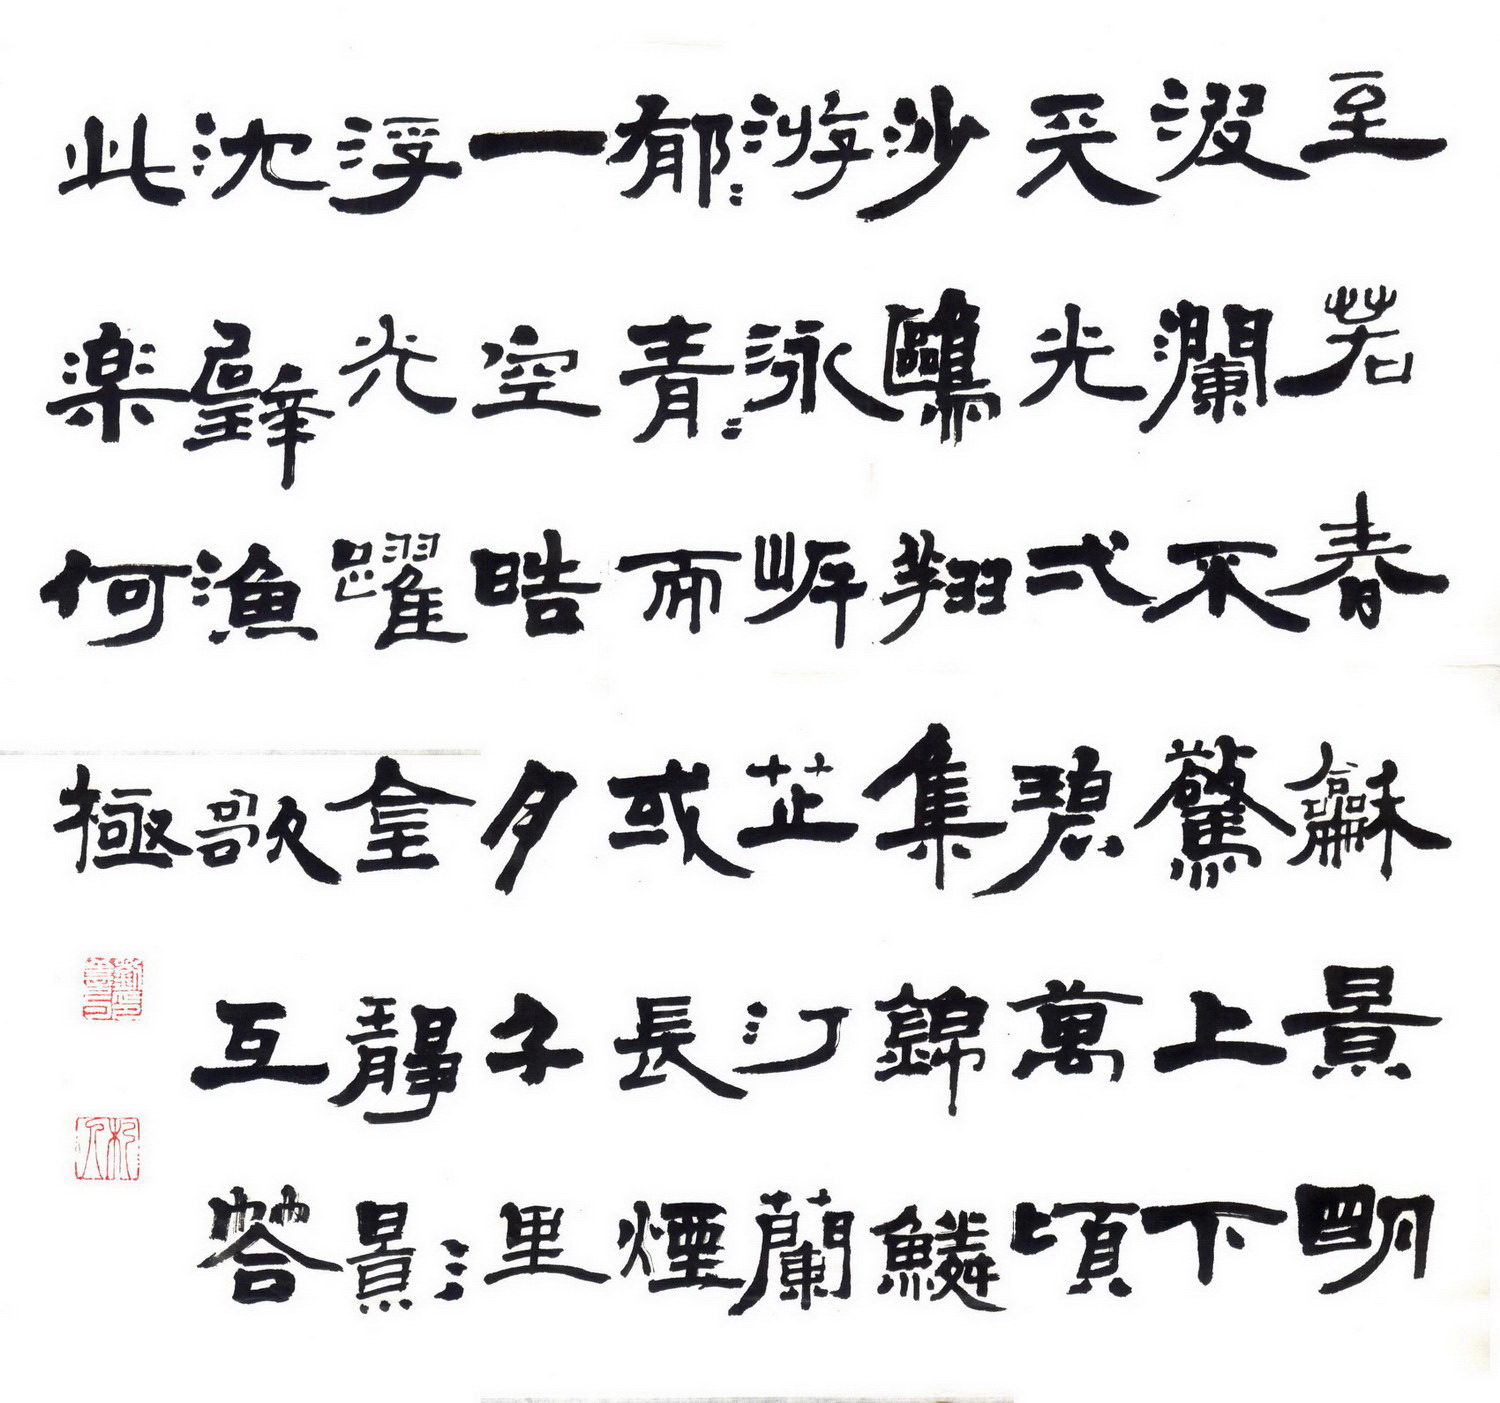 至若春龢景明
波瀾不驚上下
天光弌碧萬頃
沙鷗翔集錦鱗
游泳岸芷汀蘭
郁〻青〻而或長煙
一空晧月千里
浮光躍金靜影
沈璧漁歌互荅
此楽何極